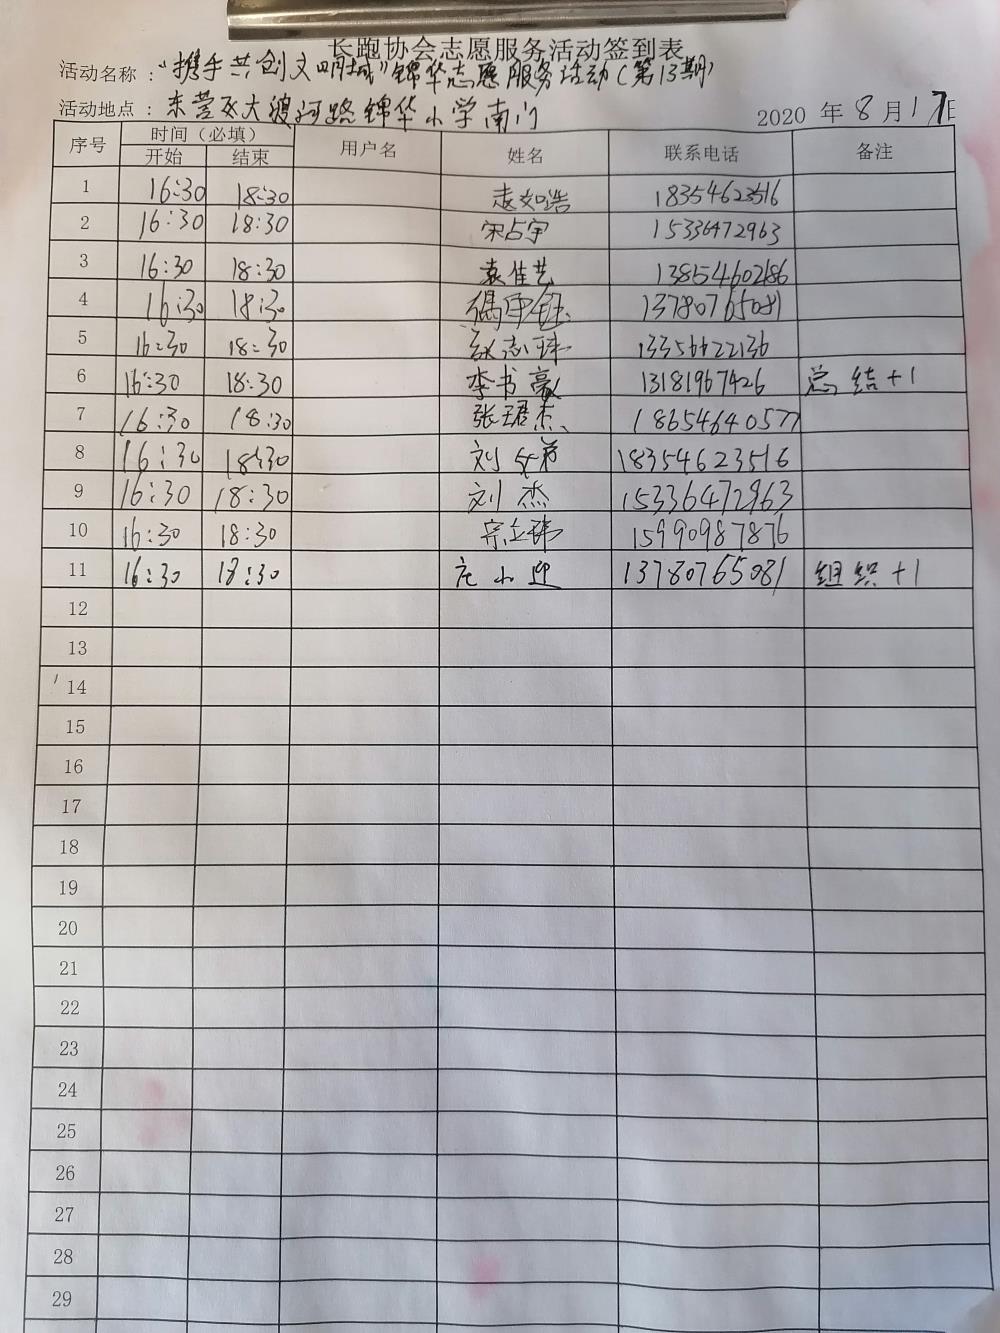 长跑协会志愿服务活动签到表
活动名称："携手共创文明城"锦华志愿服务活动(第13期)
活动地点：东营区大渡河路锦华小学南门 2020 年 8 月 17 日
序号 时间（必填） 用户名 姓名 联系电话 备注
开始 结束
1 16:30 18:30 18354623516
2 16:30 18:30 宋占宇 15336472963
3 16:30 18:30 袁佳艺 13854602186
4 16:30 18:30 13780765081
5 16:30 18:30 赵志玮 13356622136
6 16:30 18:30 李书豪 13181967426 总结+1
7 16:30 18:30 张珺杰 18654640577
8 16:30 18:30 刘 18354623516
9 16:30 18:30 刘杰 15336472963
10 16:30 18:30 宗立玮 15990987876
11 16:30 18:30 庄小迎 13780765081 组织+1
12
13
14
15
16
17
18
19
20
21
22
23
24
25
26
27
28
29